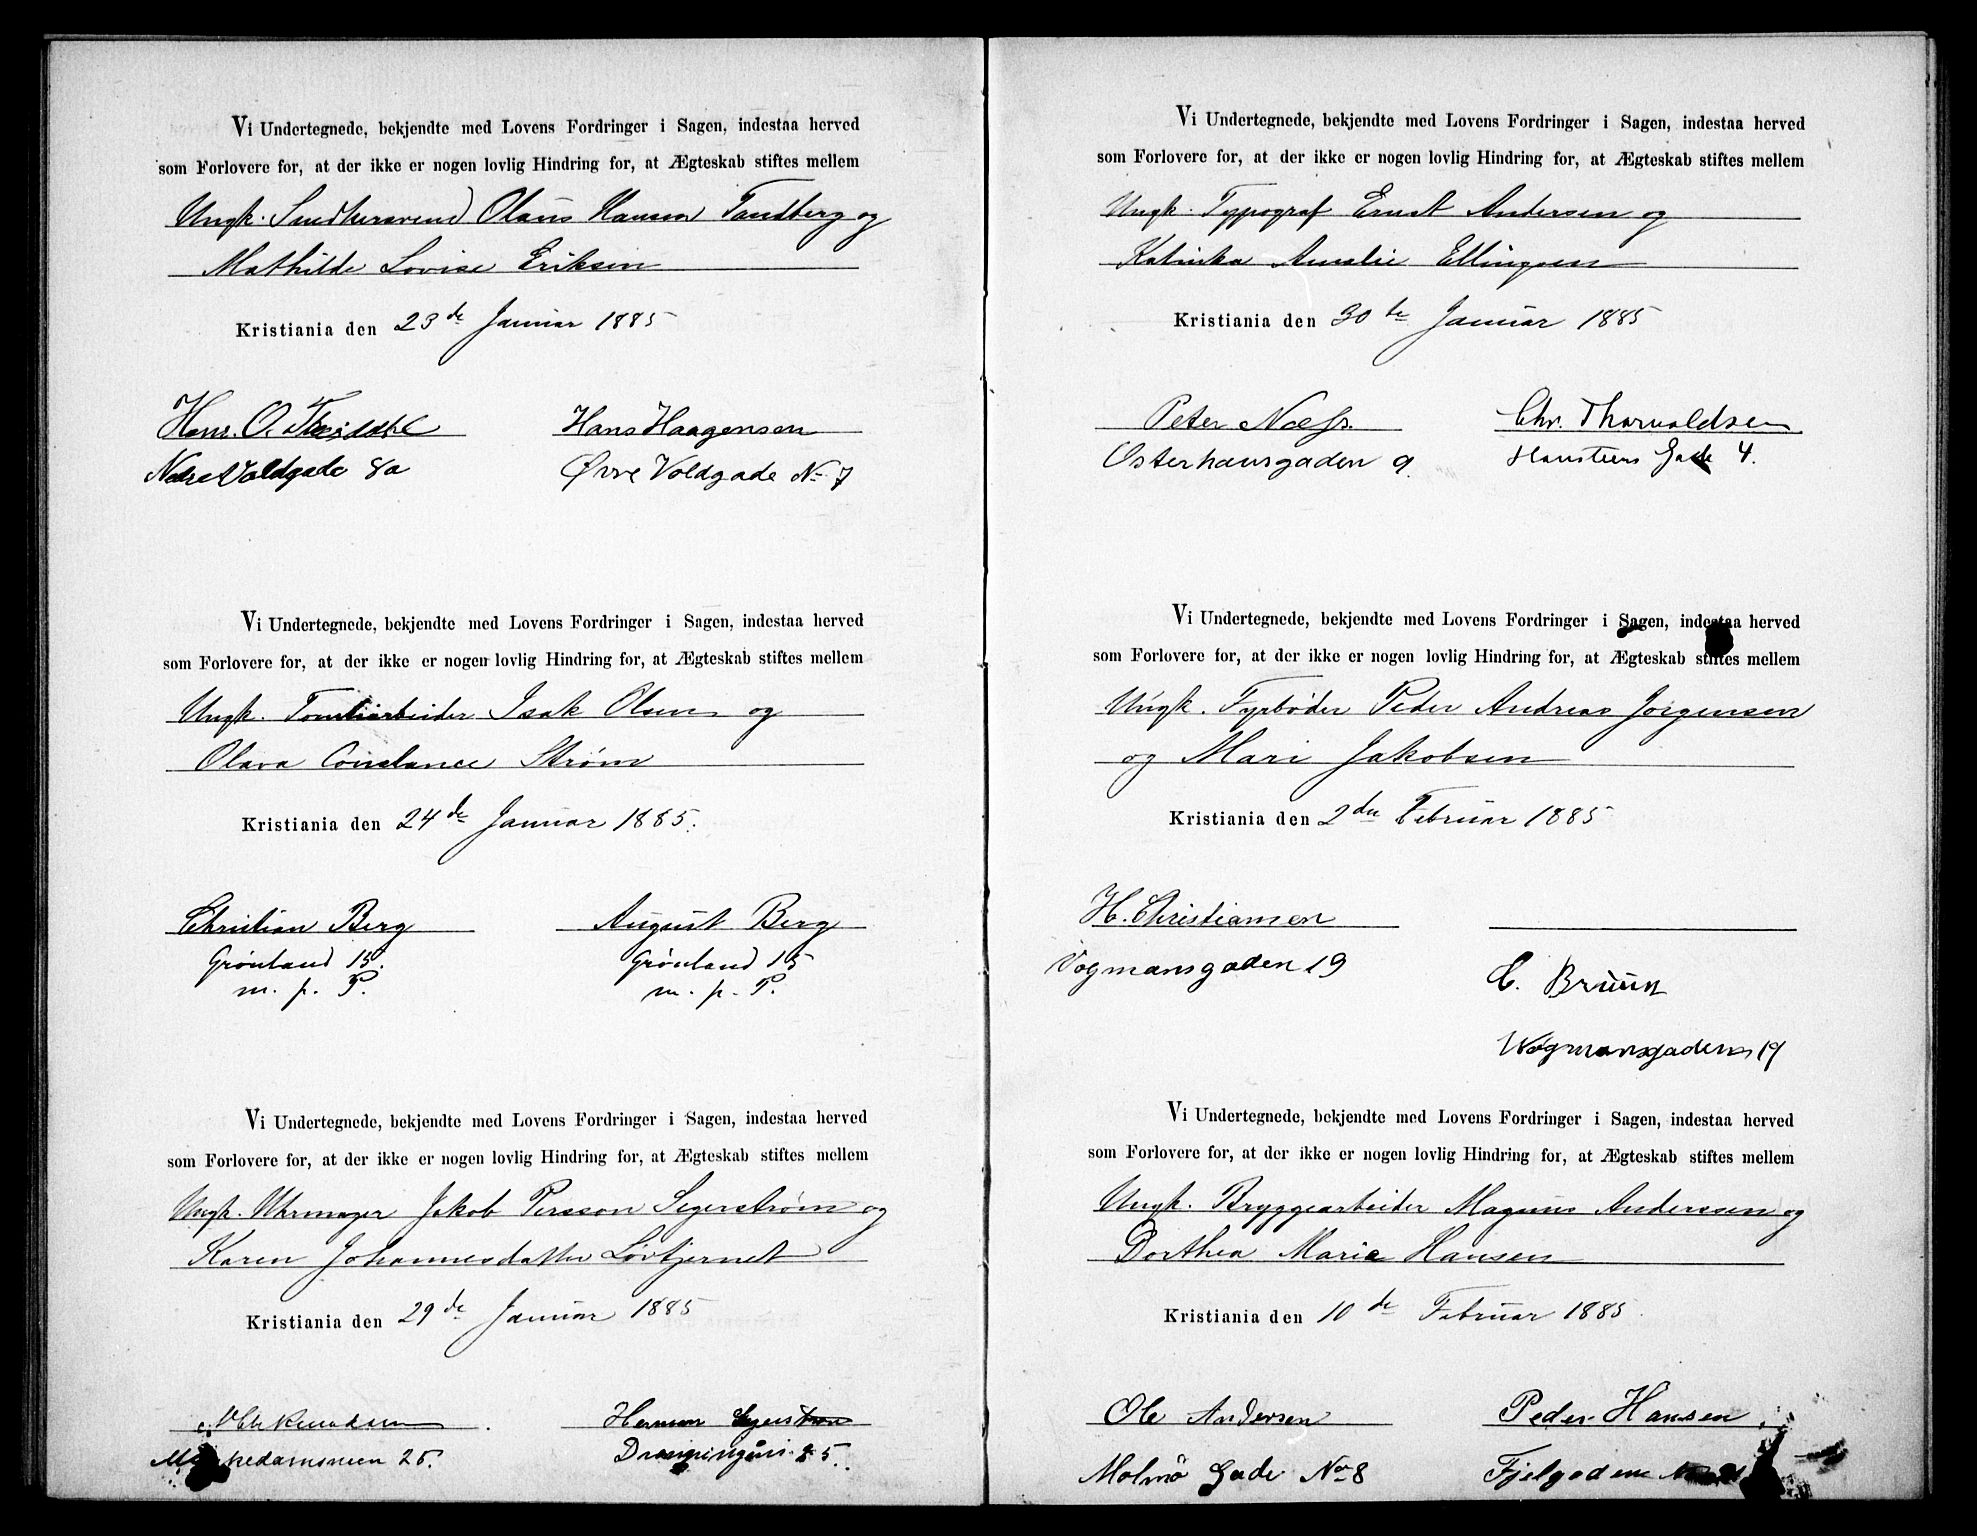 Vi Undertegnede, bekjendte med Lovens Fordringer i Sagen, indestaa herved
som Forlovere for, at der ikke er nogen lovlig Hindring for, at Ægteskab stiftes mellem
Ungk. Snedkersvend Olaus Hansen Tandberg og
Mathilde Lovise Eriksen
Kristiania den 23de Januar 1885
Hans. O.
Hans Haagensen
Nedre Voldgade 8a
Øvre Voldgade No 7
Vi Undertegnede, bekjendte med Lovens Fordringer i Sagen, indestaa herved
som Forlovere for, at der ikke er nogen lovlig Hindring for, at Ægteskab stiftes mellem
Ungk. Tomtearbeider Isak Olsen og
Olava Constance Strøm
Kristiania den 24de Januar 1885.
Christian Berg
August Berg
Grønland 15.
Grønland 15
m. p. P.
m. p. P.
Vi Undertegnede, bekjendte med Lovens Fordringer i Sagen, indestaa herved
som Forlovere for, at der ikke er nogen lovlig Hindring for, at Ægteskab stiftes mellem
Ungk. Uhrmager Jakob Persson Segerstrøm og
Karen Johannesdatter Løvtjernet
Kristiania den 29de Januar 1885
Knudsen
Herman Segerstrøm
25.
25.
Vi Undertegnede, bekjendte med Lovens Fordringer i Sagen, indestaa herved
som Forlovere for, at der ikke er nogen lovlig Hindring for, at Ægteskab stiftes mellem
Ungk. Typograf Ernst Andersen og
Katinka Amalie Ellingsen
Kristiania den 30te Januar 1885
Peter Næss.
Chr. Thorvaldsen
Osterhausgaden 9.
Hansteens Gade 4.
Vi Undertegnede, bekjendte med Lovens Fordringer i Sagen, indestaa herved
som Forlovere for, at der ikke er nogen lovlig Hindring for, at Ægteskab stiftes mellem
Ungk. Fyrbøder Peder Andreas Jørgensen
og Mari Jakobsen
Kristiania den 2den Februar 1885
H. Christiansen
Vogmansgaden 19
C. Bruun
Wogmansgaden 19
Vi Undertegnede, bekjendte med Lovens Fordringer i Sagen, indestaa herved
som Forlovere for, at der ikke er nogen lovlig Hindring for, at Ægteskab stiftes mellem
Ungk. Bryggearbeider Magnus Anderssen og
Dorthea Marie Hansen
Kristiania den 10de Februar 1885.
Ole Andersen
Peder Hansen
Molmö Gade No 8
Fjelgadene